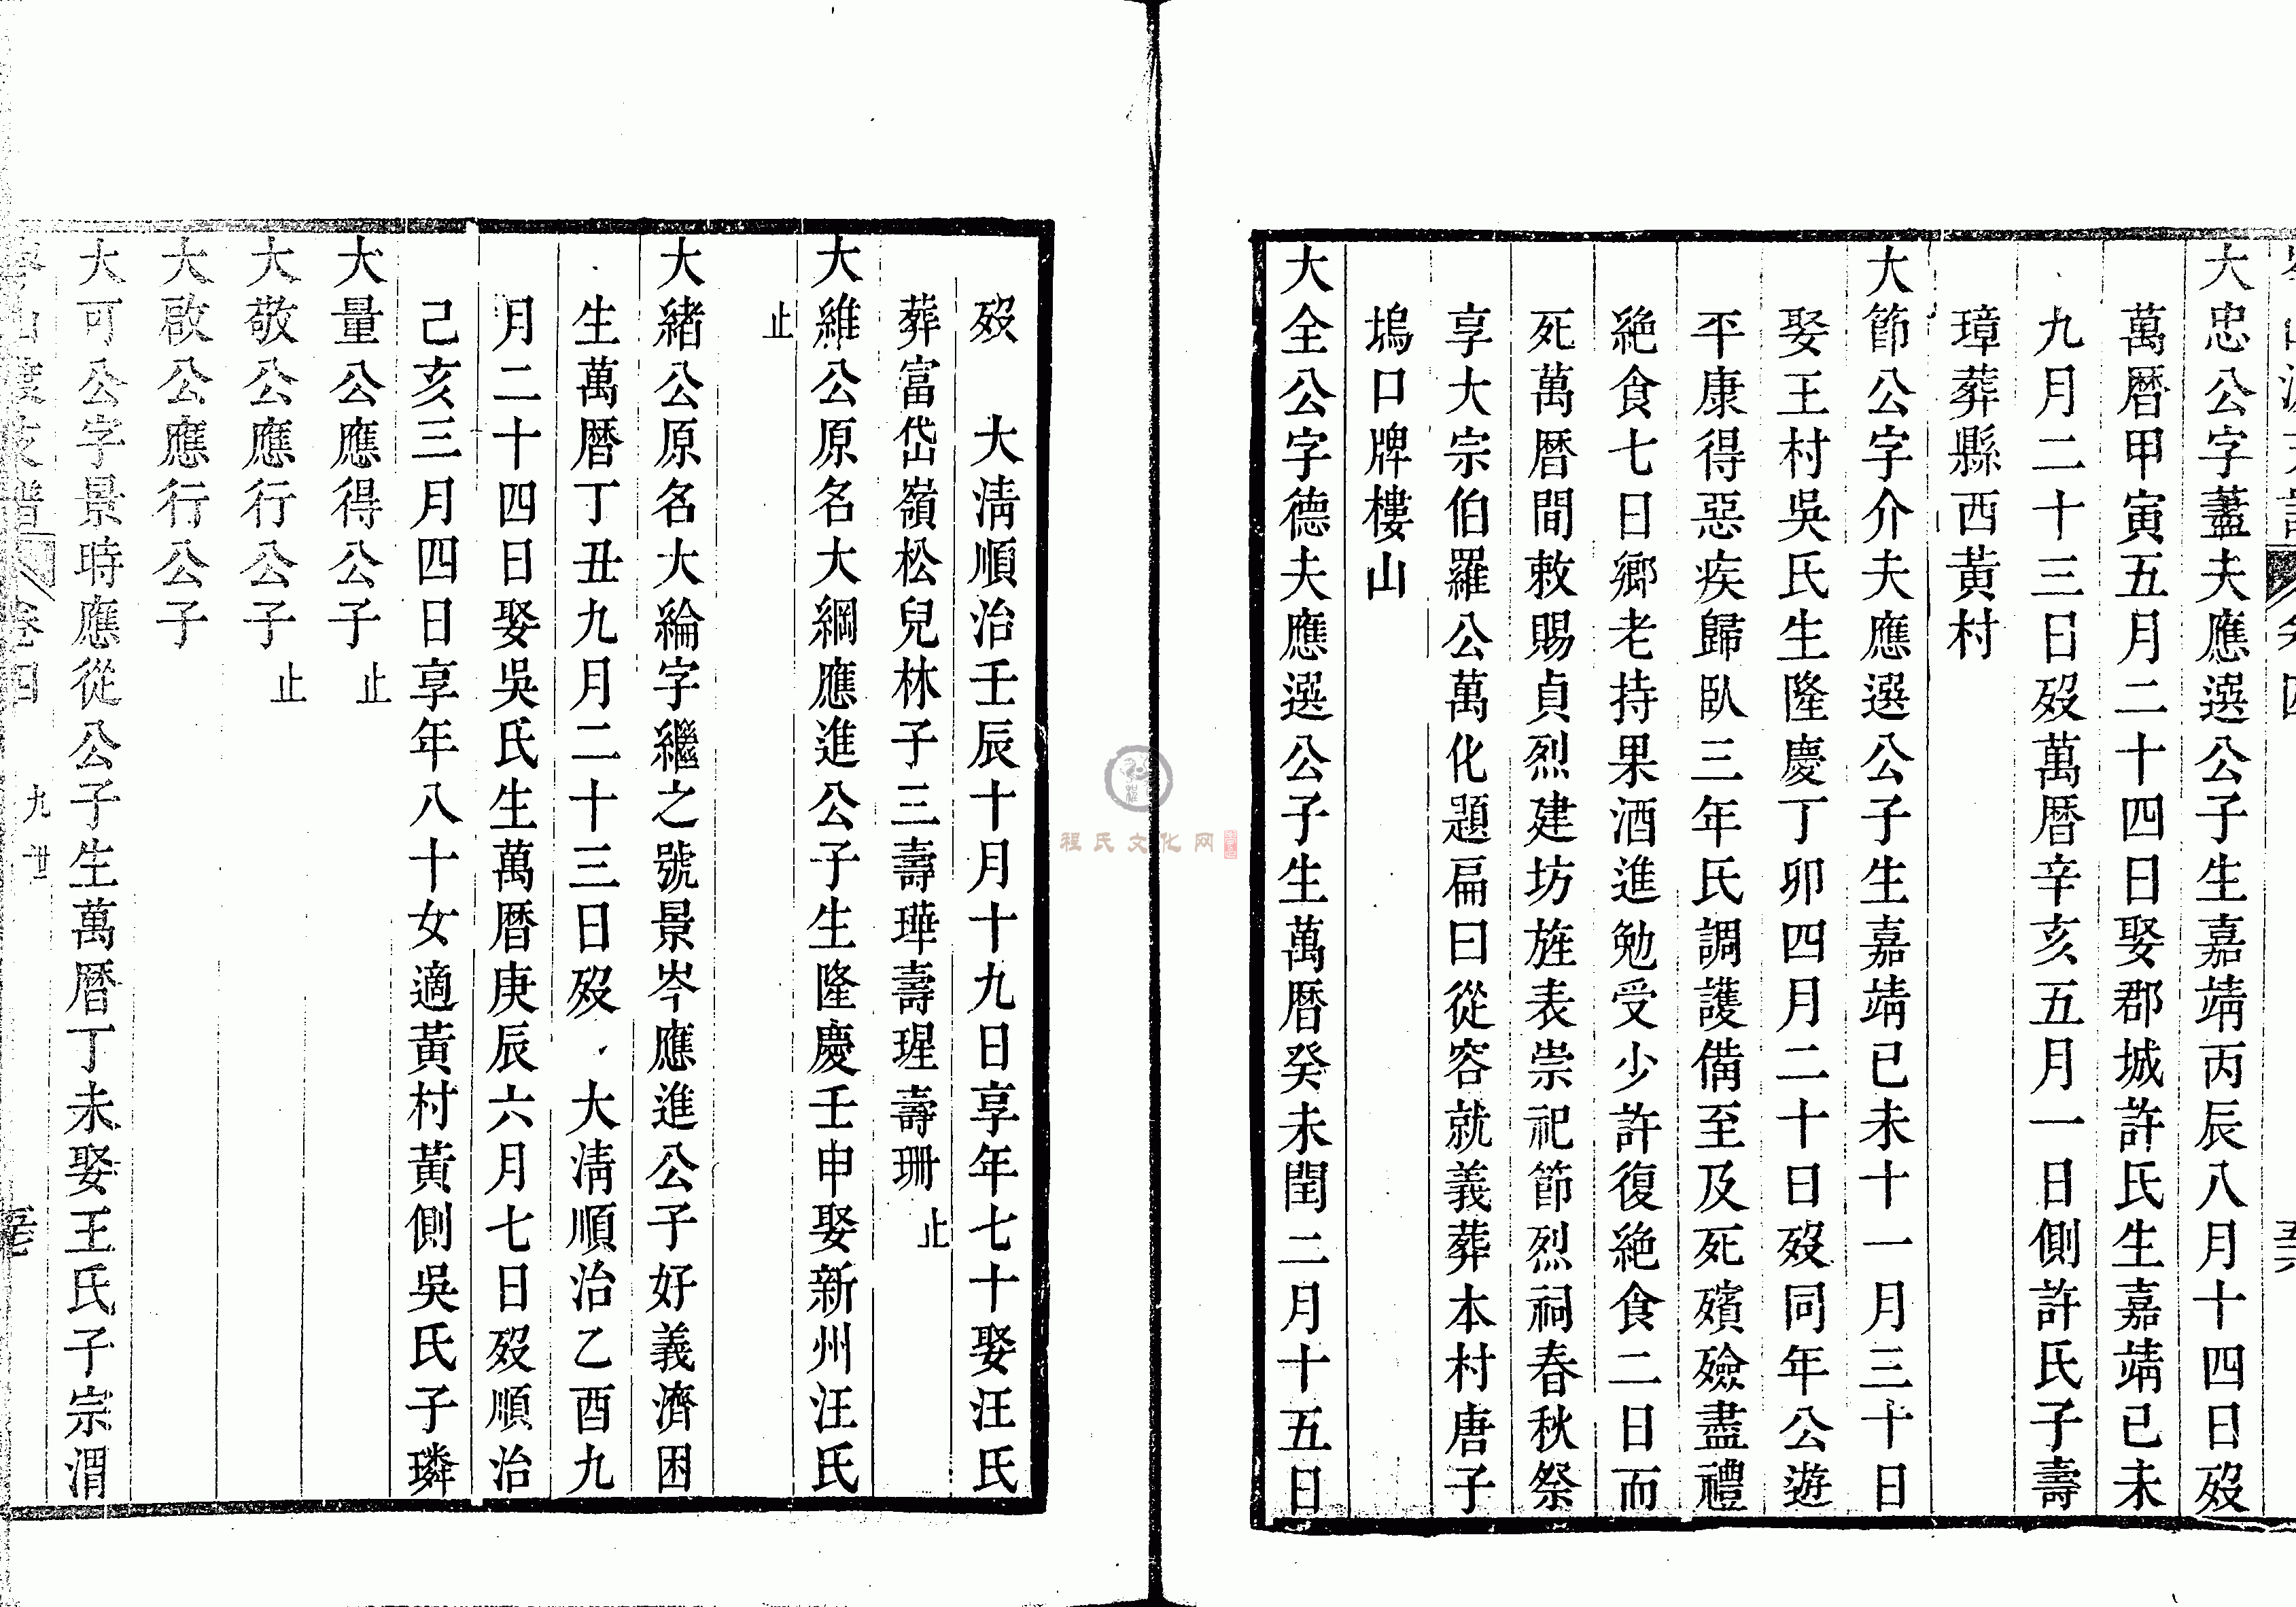 大忠公字藎夫應選公子生嘉靖丙辰八月十四日歿
萬曆甲寅五月二十四日娶郡城許氏生嘉靖己未
九月二十三日歿萬曆辛亥五月一日側許氏子壽
璋葬縣西黃村
大節公字介夫應選公子生嘉靖己未十一月三十日
娶王村吳氏生隆慶丁卯四月二十日歿同年公遊
平康得惡疾歸臥三年氏調護備至及死殯殮盡禮
絶食七日鄉老持果酒進勉受少許復絶食二日而
死萬曆間敕賜貞烈建坊旌表崇祀節烈祠春秋祭
享大宗伯羅公萬化題扁曰從容就義葬本村唐子
塢口牌樓山
大全公字德夫應選公子生萬曆癸未閏二月十五日
歿　大清順治壬辰十月十九日享年七十娶汪氏
葬富岱嶺松兒林子三壽瑋壽瑆壽珊　止
大維公原名大綱應進公子生隆慶壬申娶新州汪氏
止
大緒公原名大綸字繼之號景岑應進公子好義濟困
生萬曆丁丑九月二十三日歿　大清順治乙酉九
月二十四日娶吳氏生萬曆庚辰六月七日歿順治
己亥三月四日享年八十女適黃村黃側吳氏子璘
大量公應得公子　止
大敬公應行公子　止
大啟公應行公子
大可公字景時應從公子生萬曆丁未娶王氏子宗渭
卷四　九世
程氏文化网